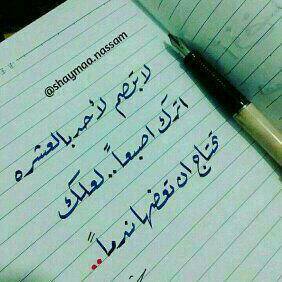 @shaymaa.nassam
لا تبصم لأحد بالعشره
اترك اصبعاً .. لعلك
تحتاج ان تعضها ندماً ..